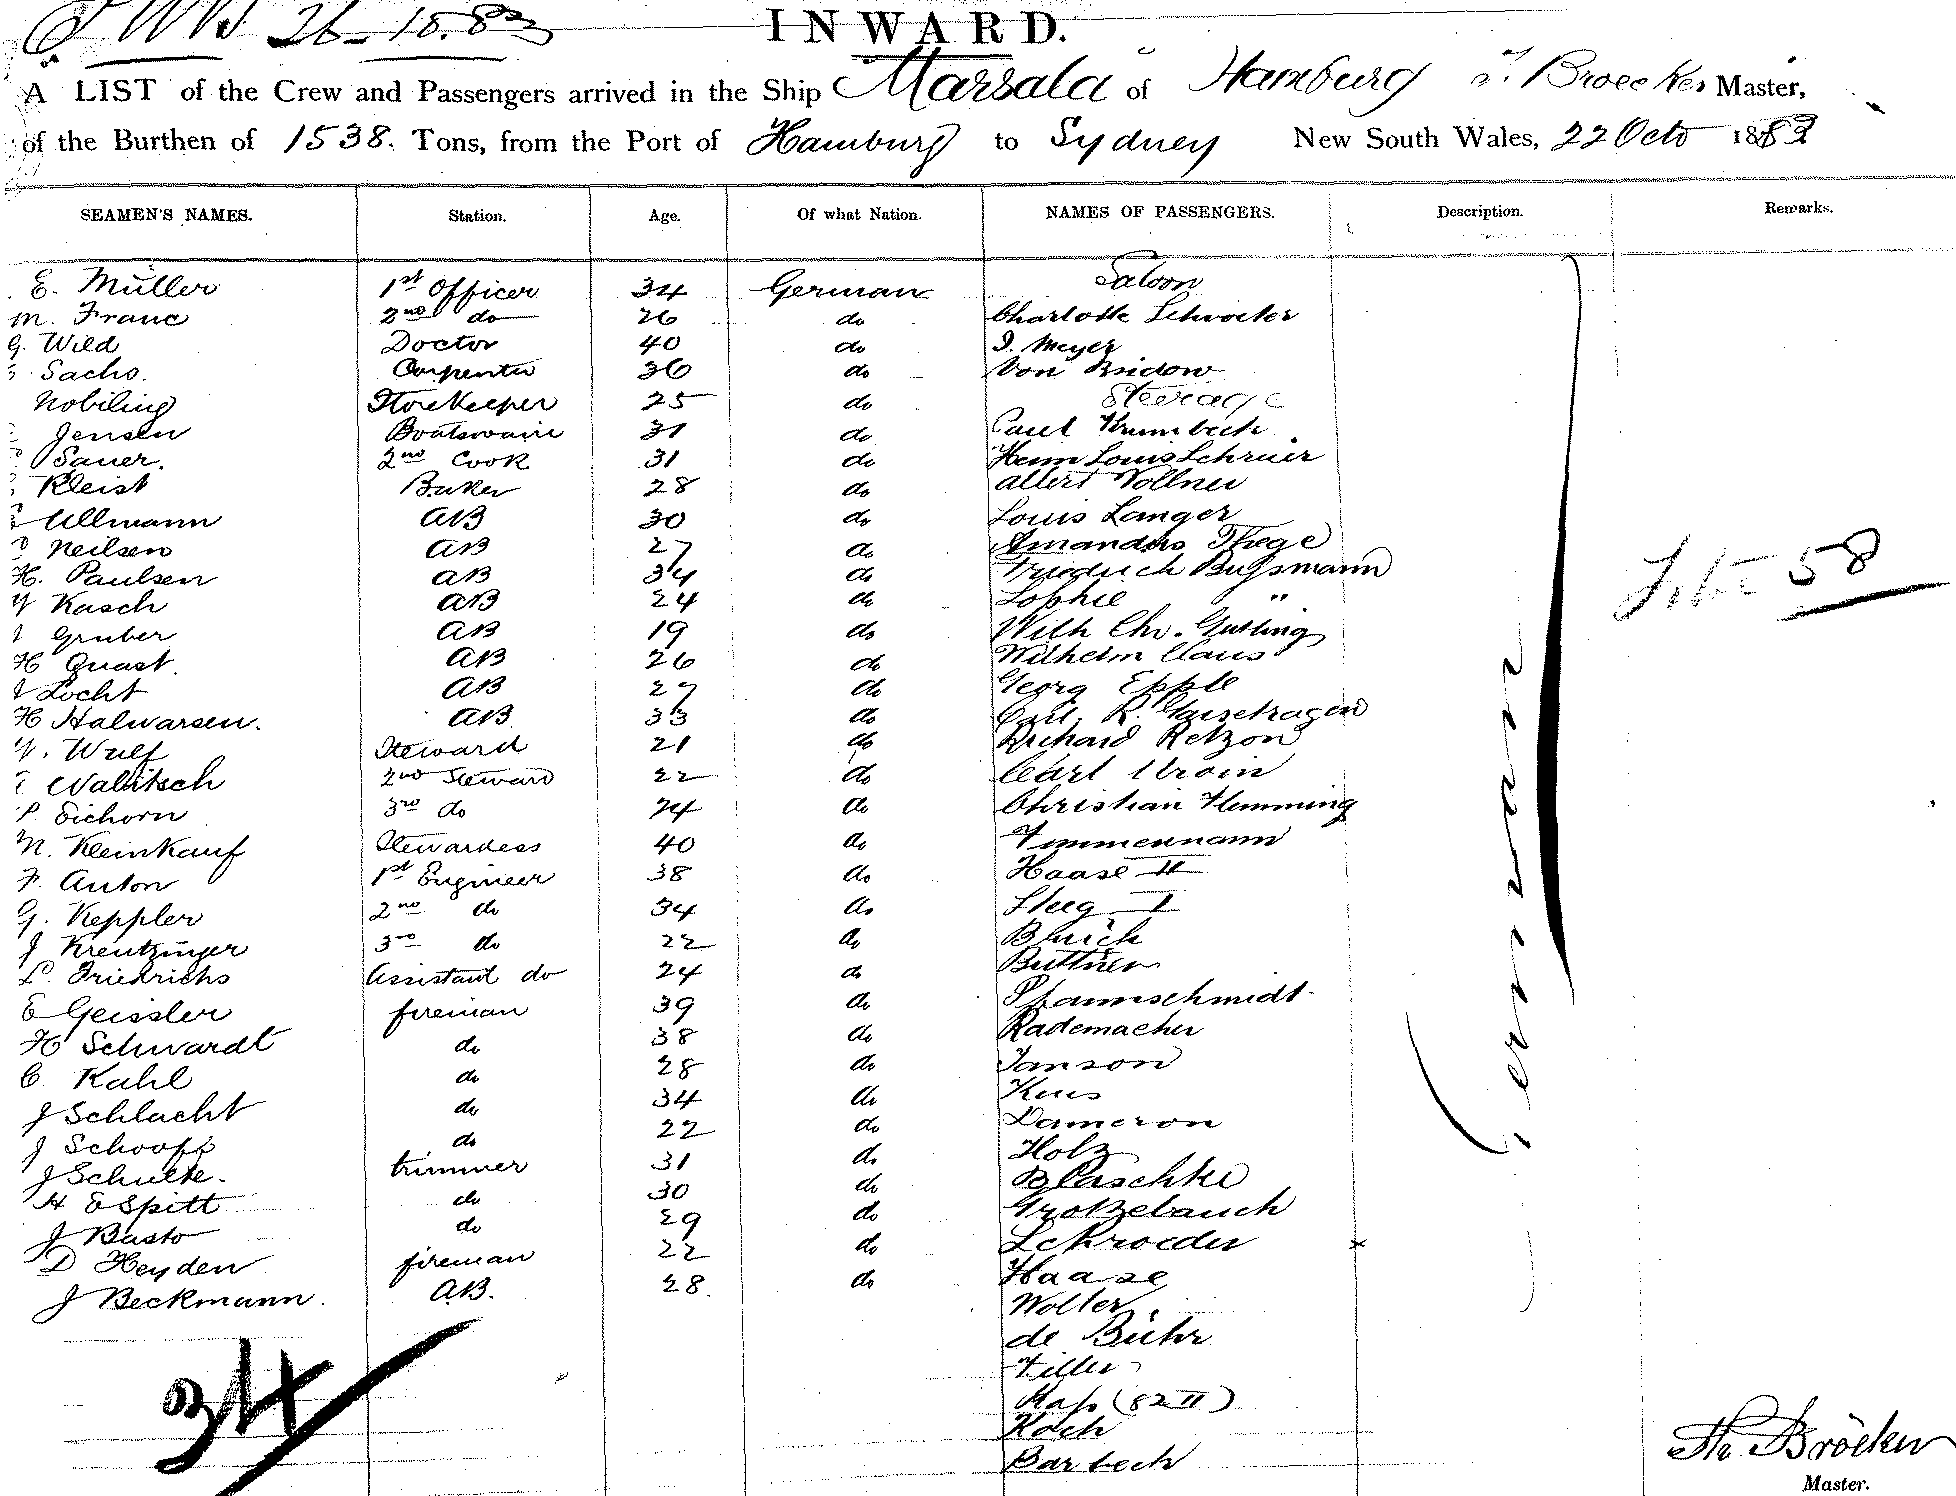 26-10.83
INWARD.
A LIST of the Crew and Passengers arrived in the Ship Marsala of Hamburg Broecker Master,
of the Burthen of 1538. Tons, from the Port of Hamburg to Sydney New South Wales, 22 Octo 1883
SEAMEN'S NAMES. Station. Age. Of what Nation. NAMES OF PASSENGERS. Description. Remarks.
Saloon
E. Müller 1st Officer 34 German
M. Franc 2nd do 26 do Charlotte Schroeter
G. Wild Doctor 40 do J. Meyer
Sachs. Carpenter 36 do Von
Nobiling Storekeeper 25 do Steerage
Jensen Boatswain 31 do Paul Krumbech
Sauer. 2nd Cook 31 do Louis Schrüer
Kleist Baker 28 do Albert Vollner
Ullmann AB 30 do Louis Langer
Neilsen AB 27 do Amandus Thege
H. Paulsen AB 34 do Friedrich Bußmann
Kasch AB 24 do Sophie "
Gruber AB 19 do Wilh Chr.
H Quast. AB 26 do Wilhelm Claus
Locht AB 27 do Georg Epple
H Halwarsen. AB 33 do Carl R.
W. Wulf Steward 21 do Richard Retzon
Wallitsch 2nd Steward 22 do Carl
P. Eichorn 3rd do 24 do Christian Flemming
N. Kleinkauf Stewardess 40 do Timmermann
F. Anton 1st Engineer 38 do Haase II
G. Keppler 2nd do 34 do Steeg I
J Kreutzinger 3rd do 22 do
L. Friedrichs Assistant do 24 do Buttner
E Geissler fireman 39 do Pfannschmidt
H Schwardt do 38 do Rademacher
C. Kahl do 28 do Janson
J Schlacht do 34 do Kus
J Schooff do 22 do Dameron
J Schulte. trimmer 31 do Holz
H E Spitt do 30 do Blaschke
J Basto do 29 do Grotzebauch
D Heyden fireman 22 do Schroeder x
J Beckmann. AB. 28. do Haase
Wolter.
de Bühr
Tiller
(82 II)
Koch
Barbech
German
58
34
Th. Bröcker
Master.